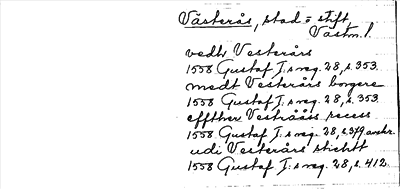 Västerås, stad o stift,
Västm. l.
vedh Vesterårs
1558 Gustaf I:s reg. 28, s. 353.
medt Vesterårs borgere
1558 Gustaf I:s reg. 28, s. 353.
effther Vestrååss recess
1558 Gustaf I:s reg. 28, s. 379 avskr.
udi Vesterårs stichtt
1558 Gustaf I:s reg. 28, s. 412.